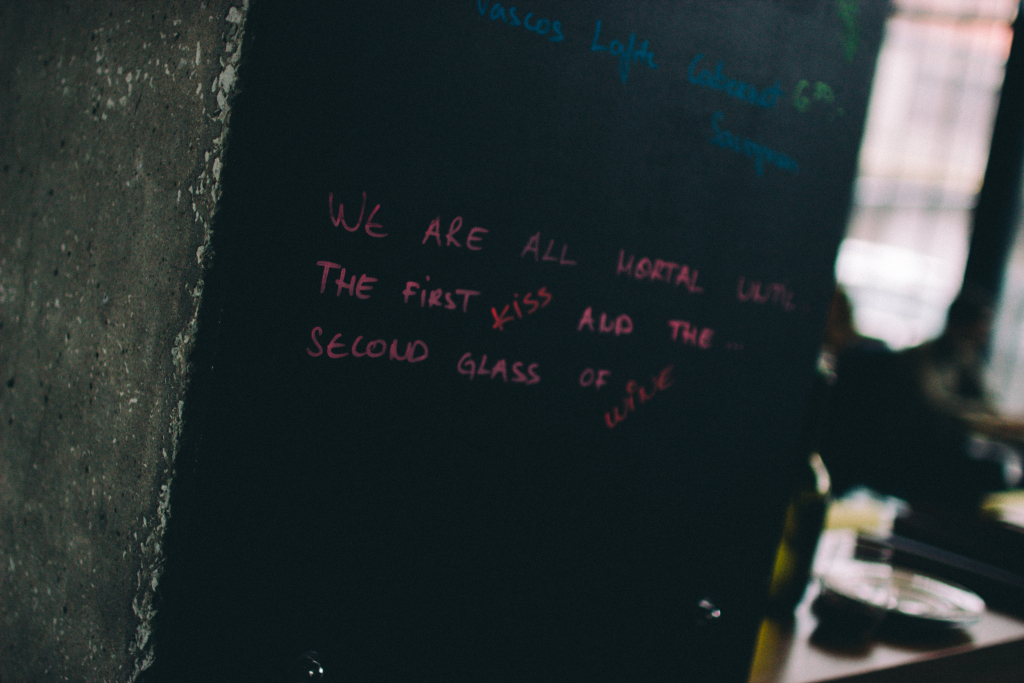 Vascos Lafite Cabernet 6⁰⁰
Sauvignon
WE ARE ALL MORTAL UNTIL...
THE FIRST KISS AND THE...
SECOND GLASS OF WINE